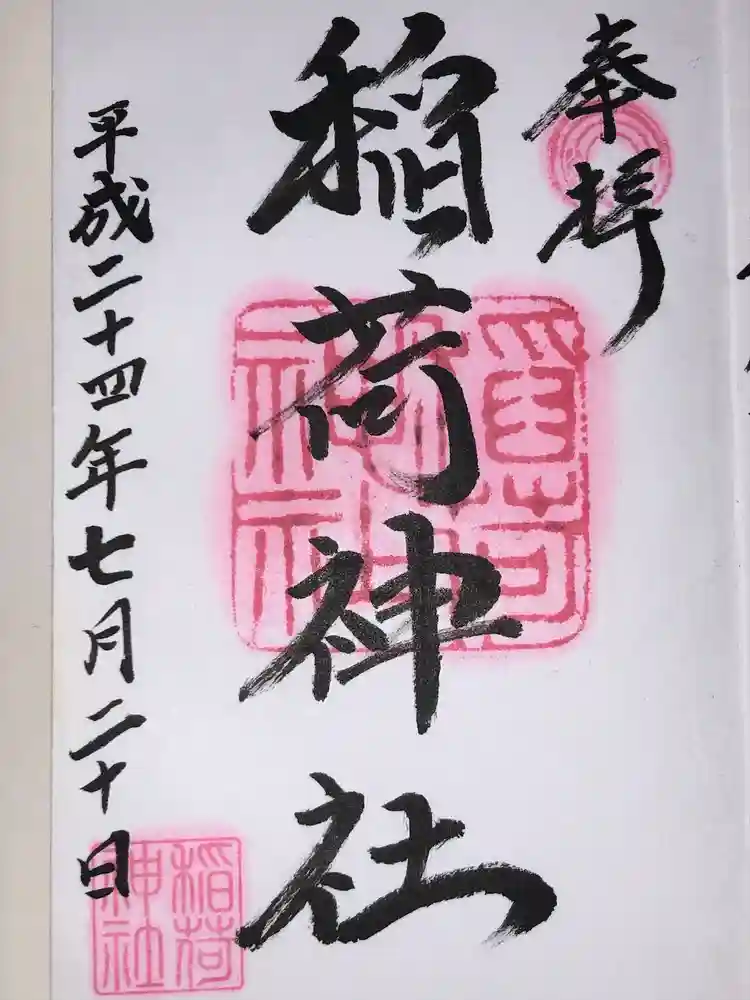 奉拝
稲荷神社
稲荷神社
平成二十四年七月二十日
稲荷神社